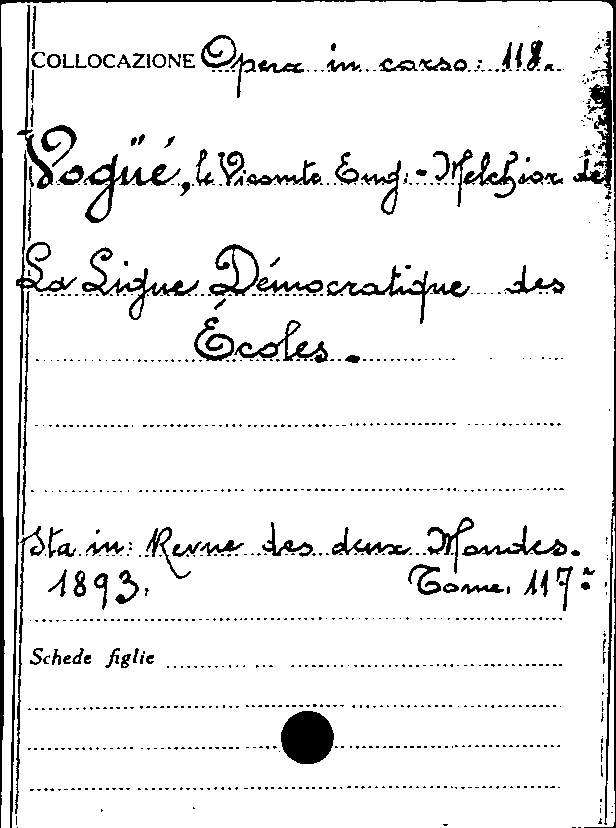 COLLOCAZIONE Opera in corso: 118.
Vogüé, le Vicomte Eug.-Melchior de
La Ligue Démocratique des
Écoles.
Sta in: Revue des deux Mondes.
1893. Tome. 117:
Schede figlie